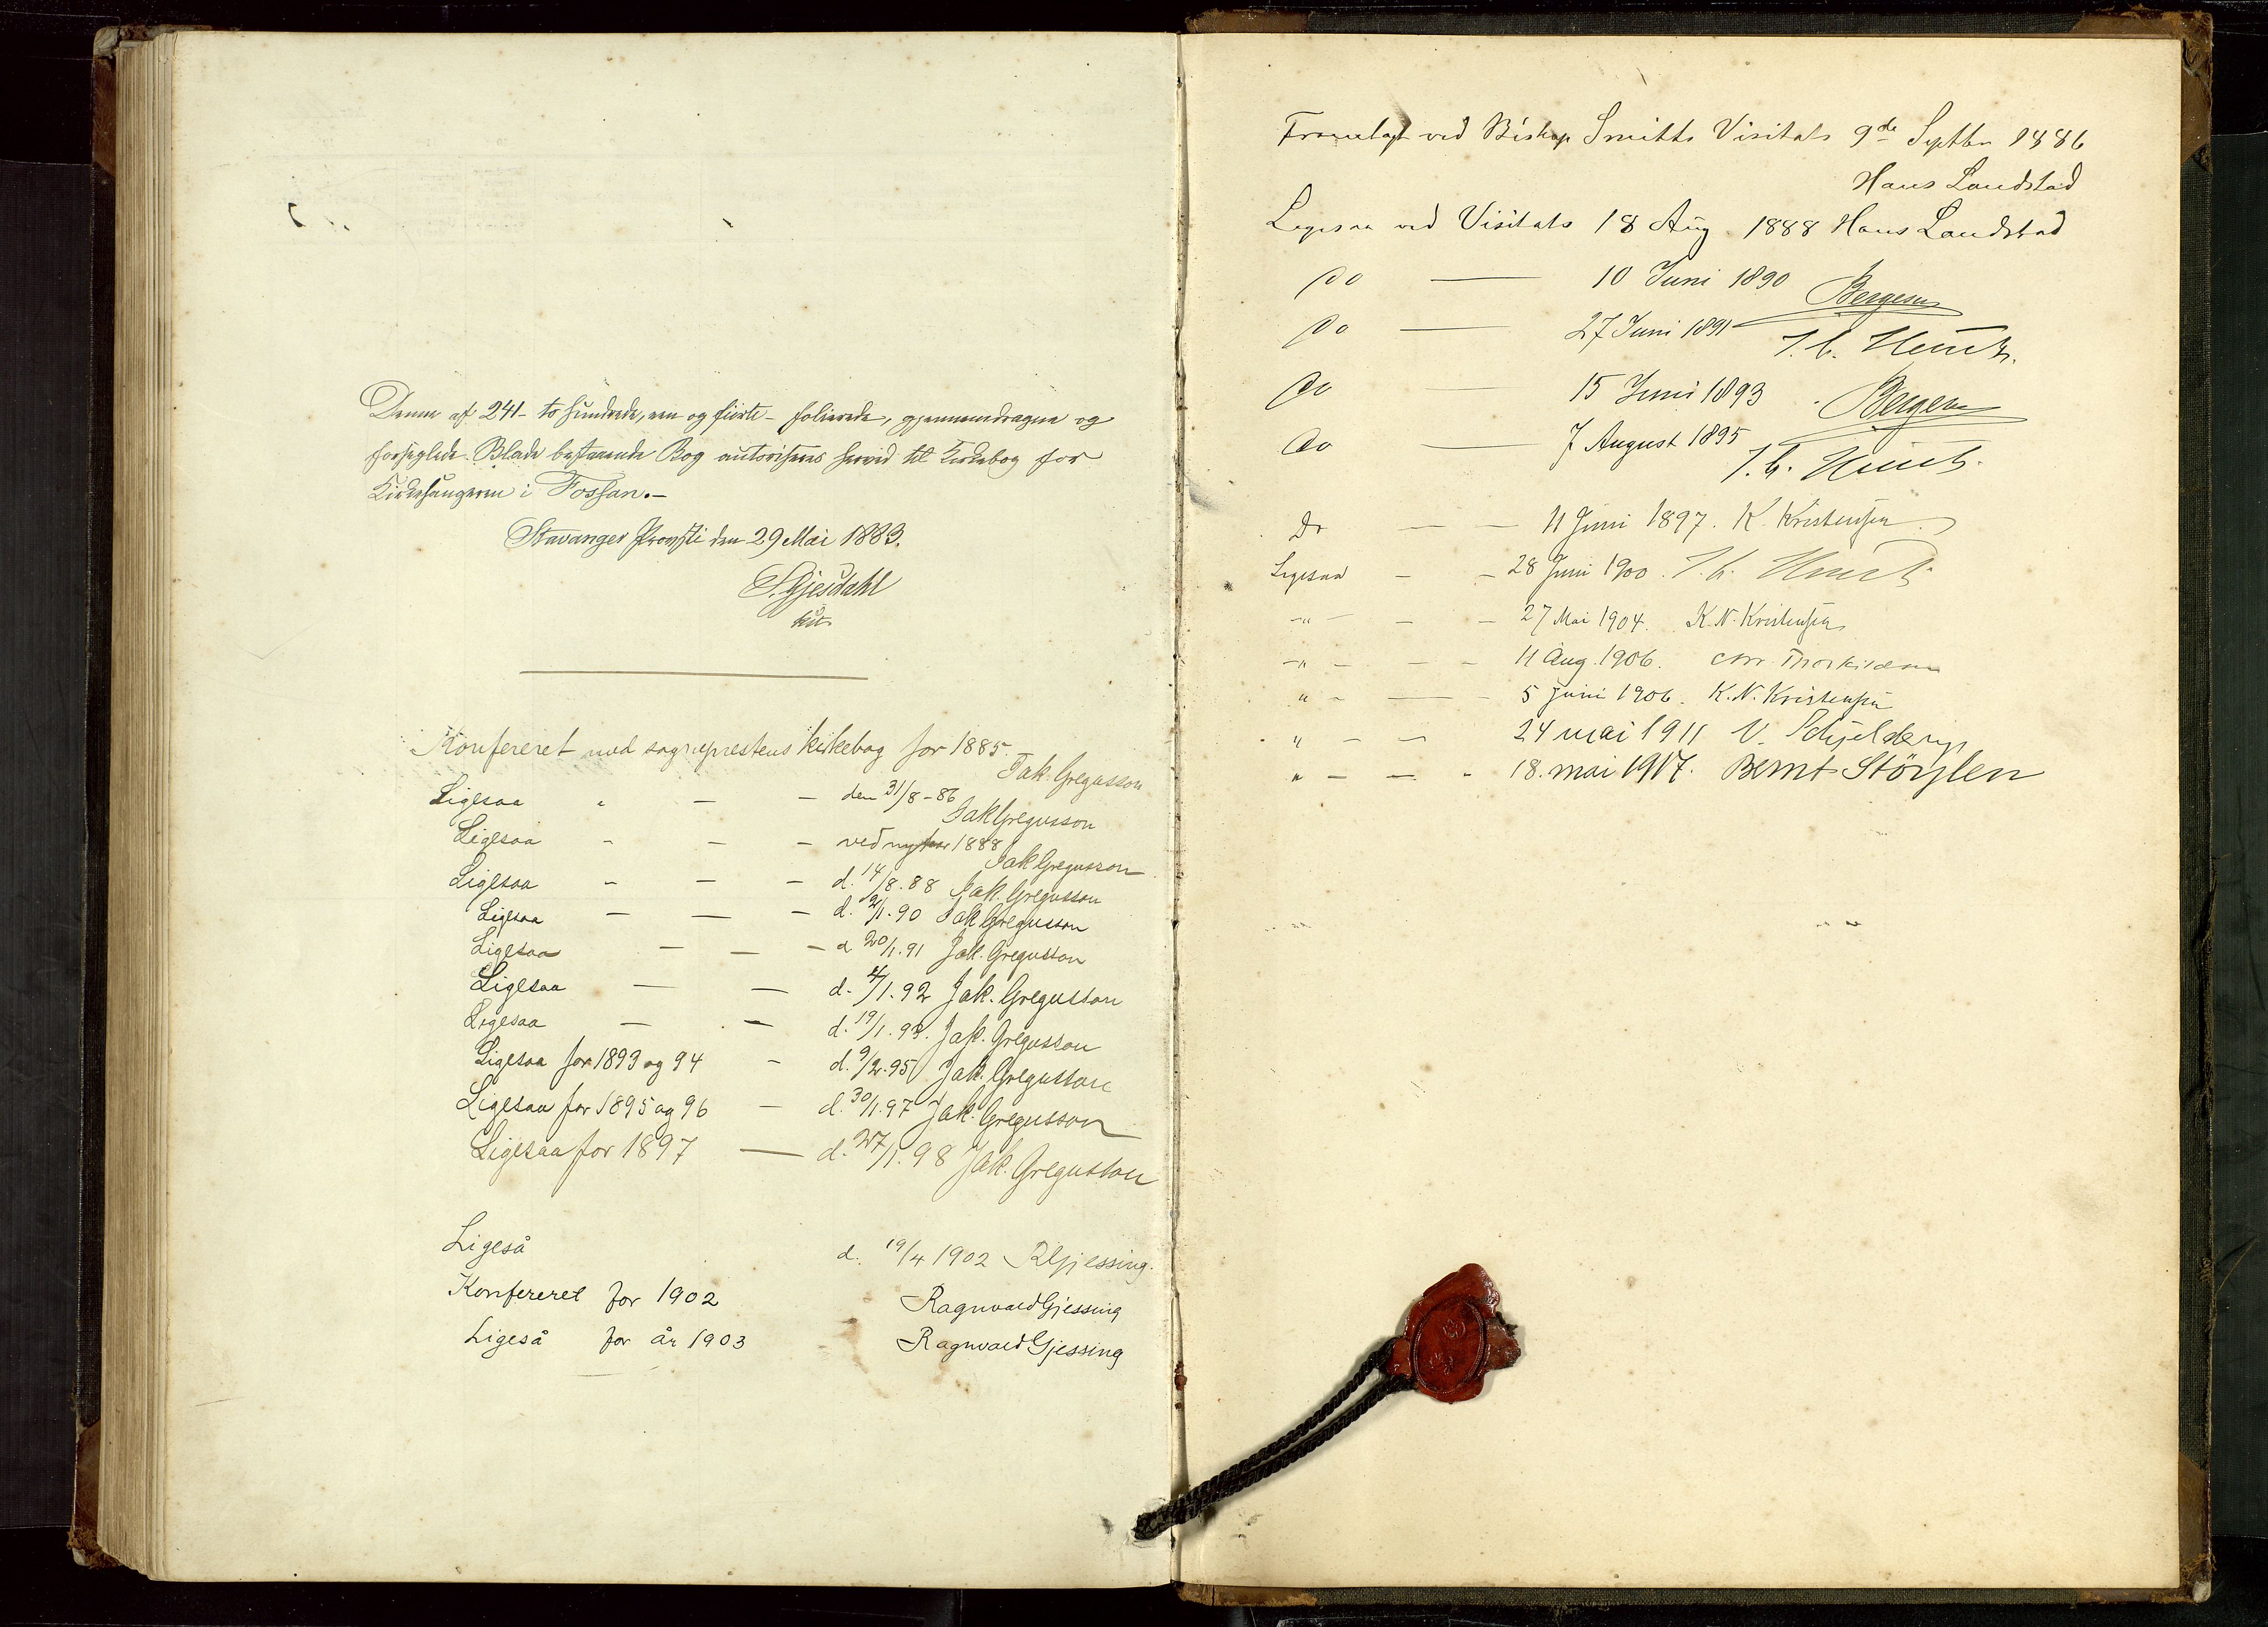 Denne af 241 - to hundrede, een og fiirti - folierede, gjennemdragne og
forseglede Blade bestaaende Bog autoriseres herved til Kirkebog for
Kirkesangeren i Fossan. -
Stavanger Provsti den 29 Mai 1883.
S. Gjesdahl
kst.
Konfereret med sogneprestens kirkebog for 1885.
Jak. Gregusson
Ligesaa " — — den 31/8 - 86
Jak Gregusson
Ligesaa - — — ved nytaar 1888
Jak Gregusson
Ligesaa - — — d. 14/8. 88 Jak. Gregusson
Ligesaa — — — d. 2/1. 90 Jak Gregusson
Ligesaa — — — d 20/1. 91 Jak. Gregusson
Ligesaa — — d. 4/1. 92 Jak. Gregusson
Ligesaa — — d. 19/1. 93. Jak. Gregusson
Ligesaa for 1893 og 94 - d. 9/2. 95 Jak. Gregusson
Ligesaa for 1895 og 96 — d. 30/1. 97 Jak. Gregusson
Ligesaa for 1897 — d. 27/1. 98 Jak. Gregusson
Ligeså d. 19/4 1902 RGjessing.
Konfereret for 1902 Ragnvald Gjessing
Ligeså for år 1903 Ragnvald Gjessing
Fremlagt ved Biskop Smitts Visitats 9de Septbr 1886
Hans Landstad
Ligesaa ved Visitats 18 Aug. 1888 Hans Landstad
Do — 10 Juni 1890 Bergesen
Do — 27 Juni 1891
Do — 15 Juni 1893 Bergesen
Do — 7 August 1895
Do — — 11 Juni 1897. K. Kristensen.
Ligesaa - - 28 Juni 1900.
-"- - - 27 Mai 1904. K. N. Kristensen
-"- - - 11 Aug. 1906. Thorkildsen
" - — - 5 juni 1906. K. N. Kristensen
" - - 24 mai 1911 V. Schjelderup
" - - - 18. mai 1917. Bernt Støylen